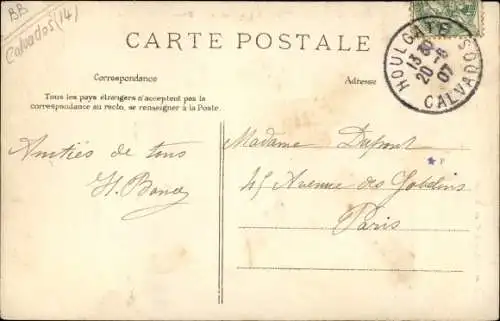 BB
Calvados (14)
CARTE POSTALE
HOULGATE
13 30
20 -8
07
CALVADOS
Correspondance
Adresse
Tous les pays étrangers n'acceptent pas la
correspondance au recto, se renseigner à la Poste.
Amitiés de tous
H.
Madame Dupont
45 Avenue des Gobelins
Paris